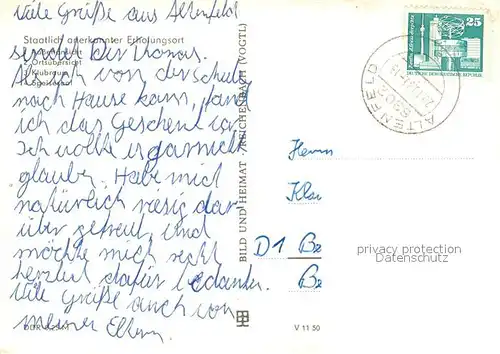 Viele Grüße aus Altenfeld
Staatlich anerkannter Erholungsort
sendet Dir Thomas.
Ortsübersicht
Als ich von der Schule
Klubraum
nach Hause kam, fand
Speisesaal
ich das Geschenk vor.
Ich wollte es garnicht
glauben. Habe mich
natürlich riesig dar-
über gefreut und
möchte mich recht
herzlich dafür bedanken.
Viele Grüße auch von
meinen Eltern.
BILD UND HEIMAT REICHENBACH (VOGTL)
V 11 50
25
DEUTSCHE DEMOKRATISCHE REPUBLIK
ALTENFELD
Herrn
Kla
D1 Be
Be
privacy protection
Datenschutz